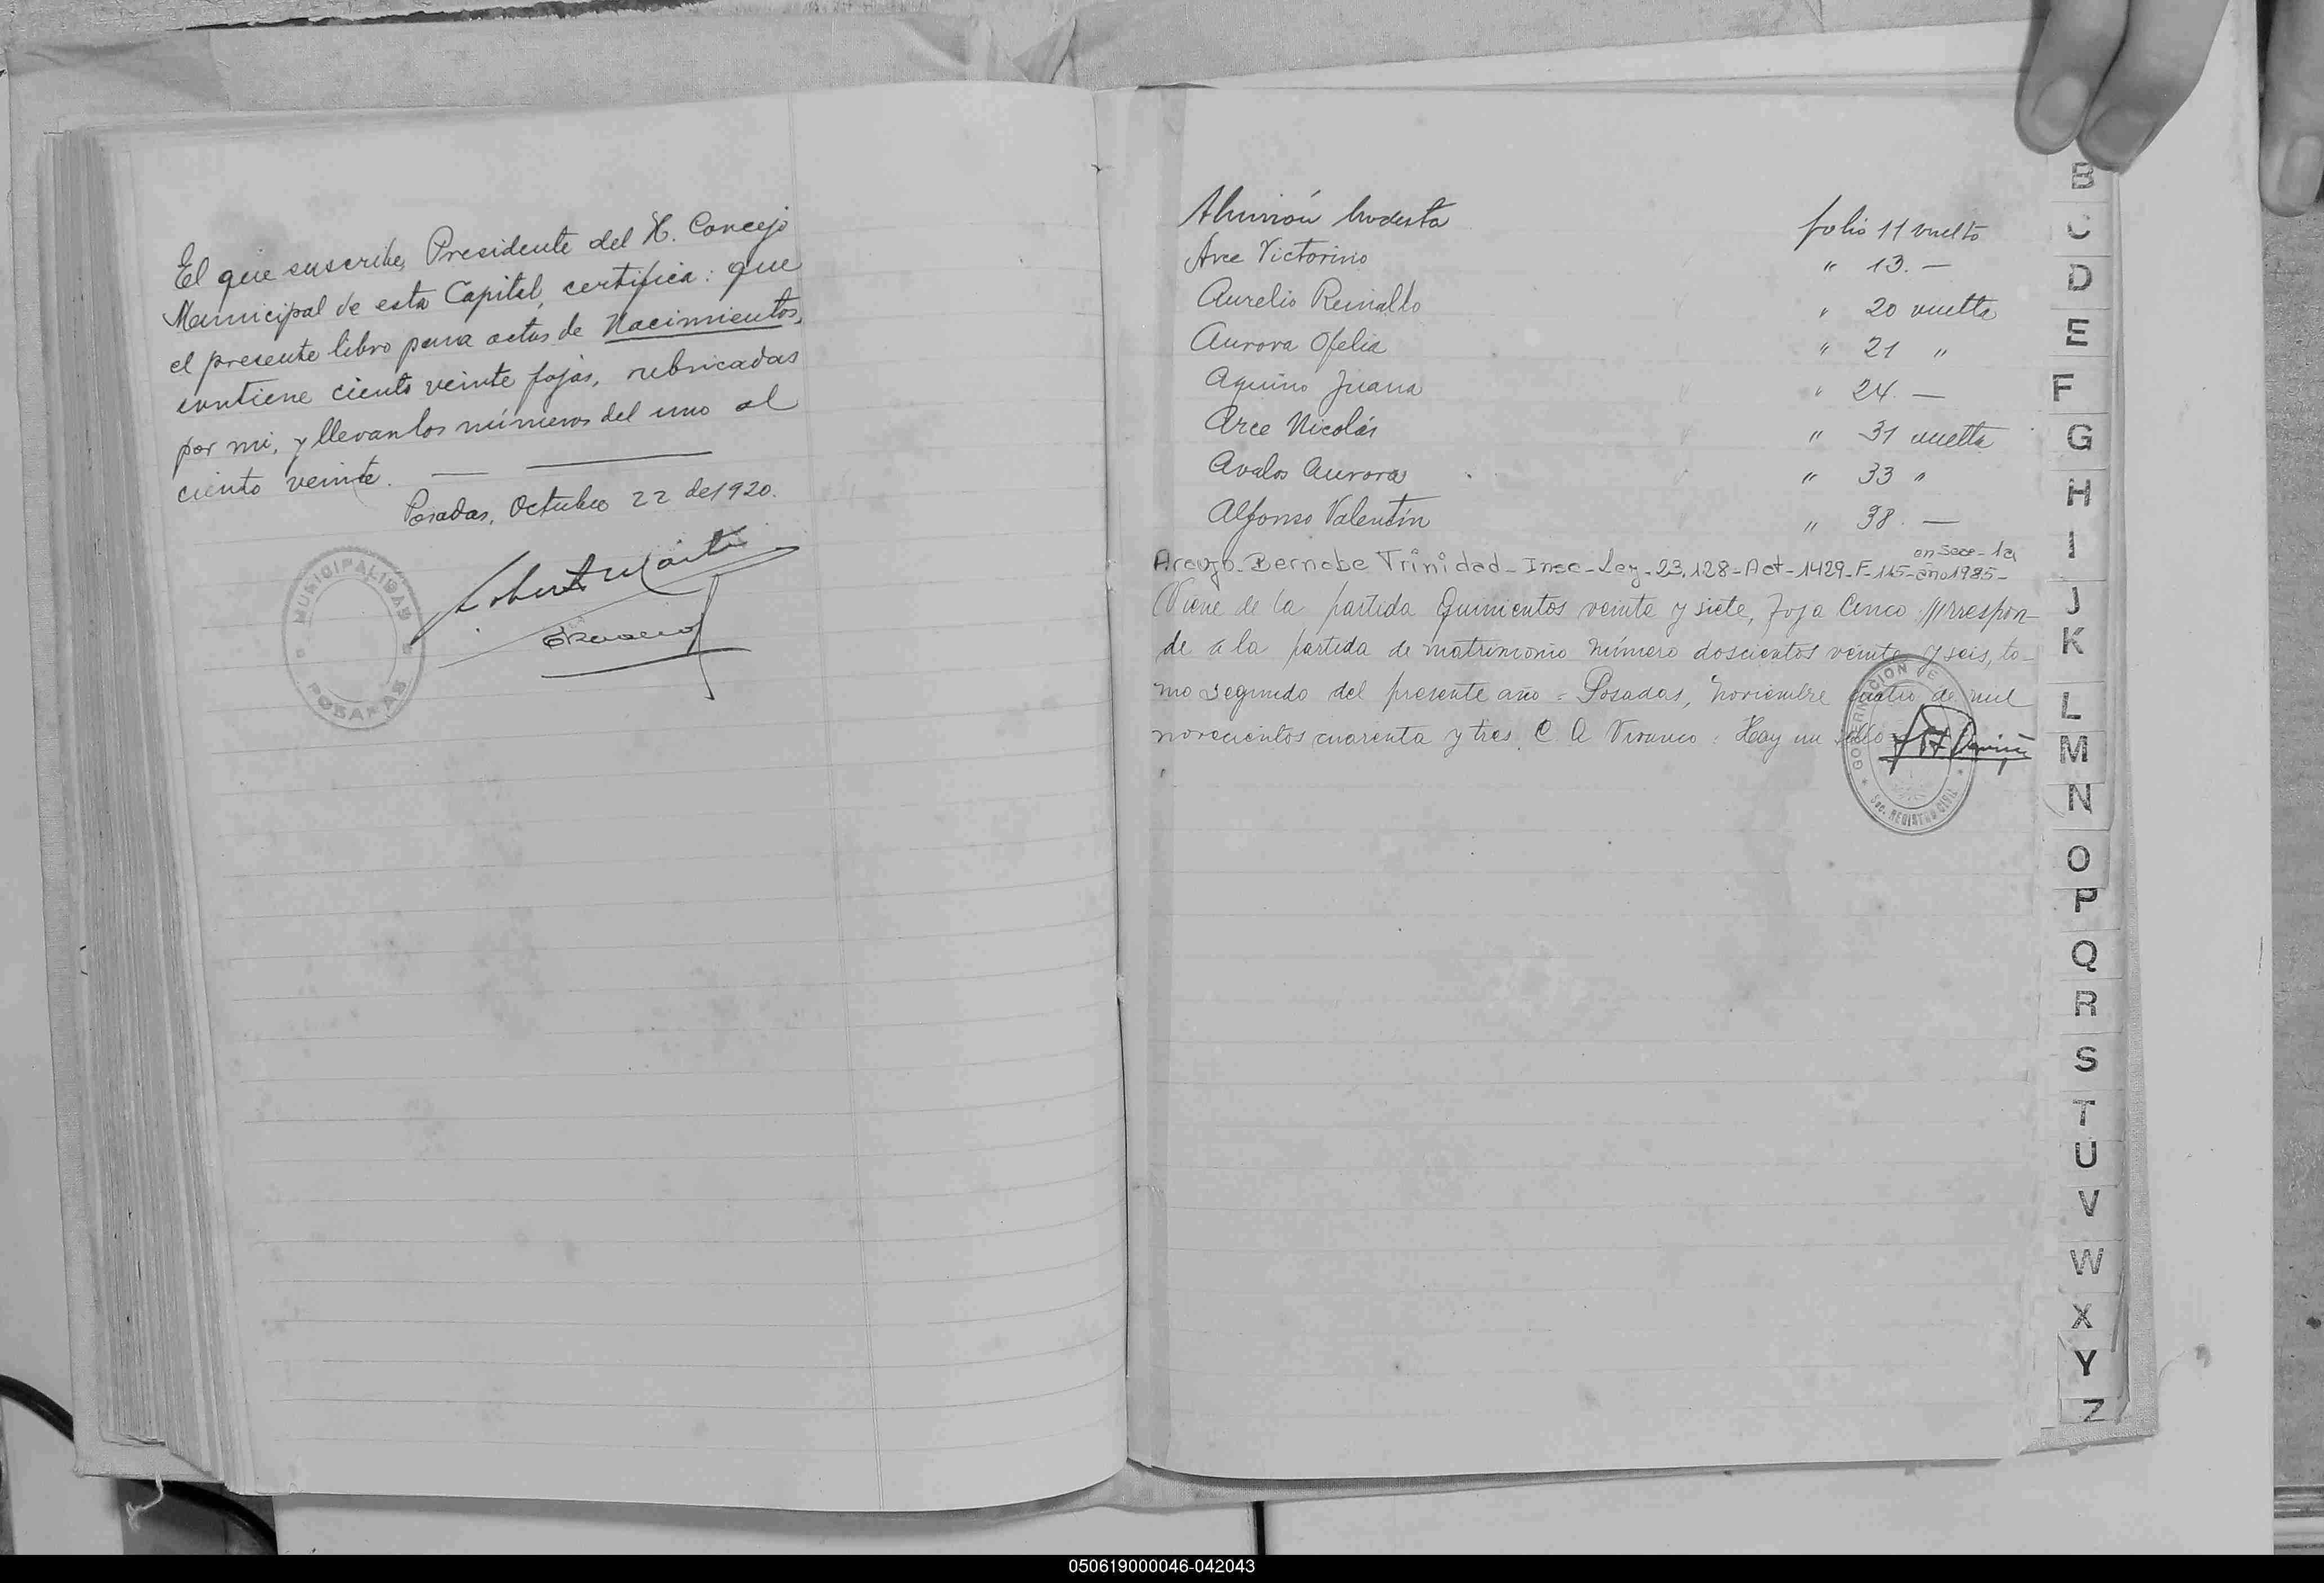 El que suscribe, Presidente del H. Concejo
Municipal de esta Capital, certifica: que
el presente libro para actas de Nacimientos,
contiene ciento veinte fojas, rubricadas
por mi, y llevan los números del uno al
ciento veinte. — —
Posadas, Octubre 22 de 1920.
MUNICIPALIDAD
POSADAS
Modesta folio 11 vuelto
Arce Victorino " 13. —
Aurelio Reinaldo " 20 vuelta
Aurora Ofelia " 21 "
Aquino Juana " 24. —
Arce Nicolás " 31 vuelta
Avalos Aurora " 33 "
Alfonso Valentín " 38. —
en Secc- 1a
Araujo-Bernabe Trinidad-Insc-Ley-23.128-Act-1429-F-115-año1985-
Viene de la partida Quinientos veinte y siete, Foja Cinco Correspon-
de a la partida de matrimonio número doscientos veinte y seis, to-
mo segundo del presente año = Posadas, noviembre cuatro de mil
novecientos cuarenta y tres. C A Vivanco: Hay un sello =
GOBERNACION DE
Sec. REGISTRO CIVIL
B
C
D
E
F
G
H
I
J
K
L
M
N
O
P
Q
R
S
T
U
V
W
X
Y
Z
050619000046-042043